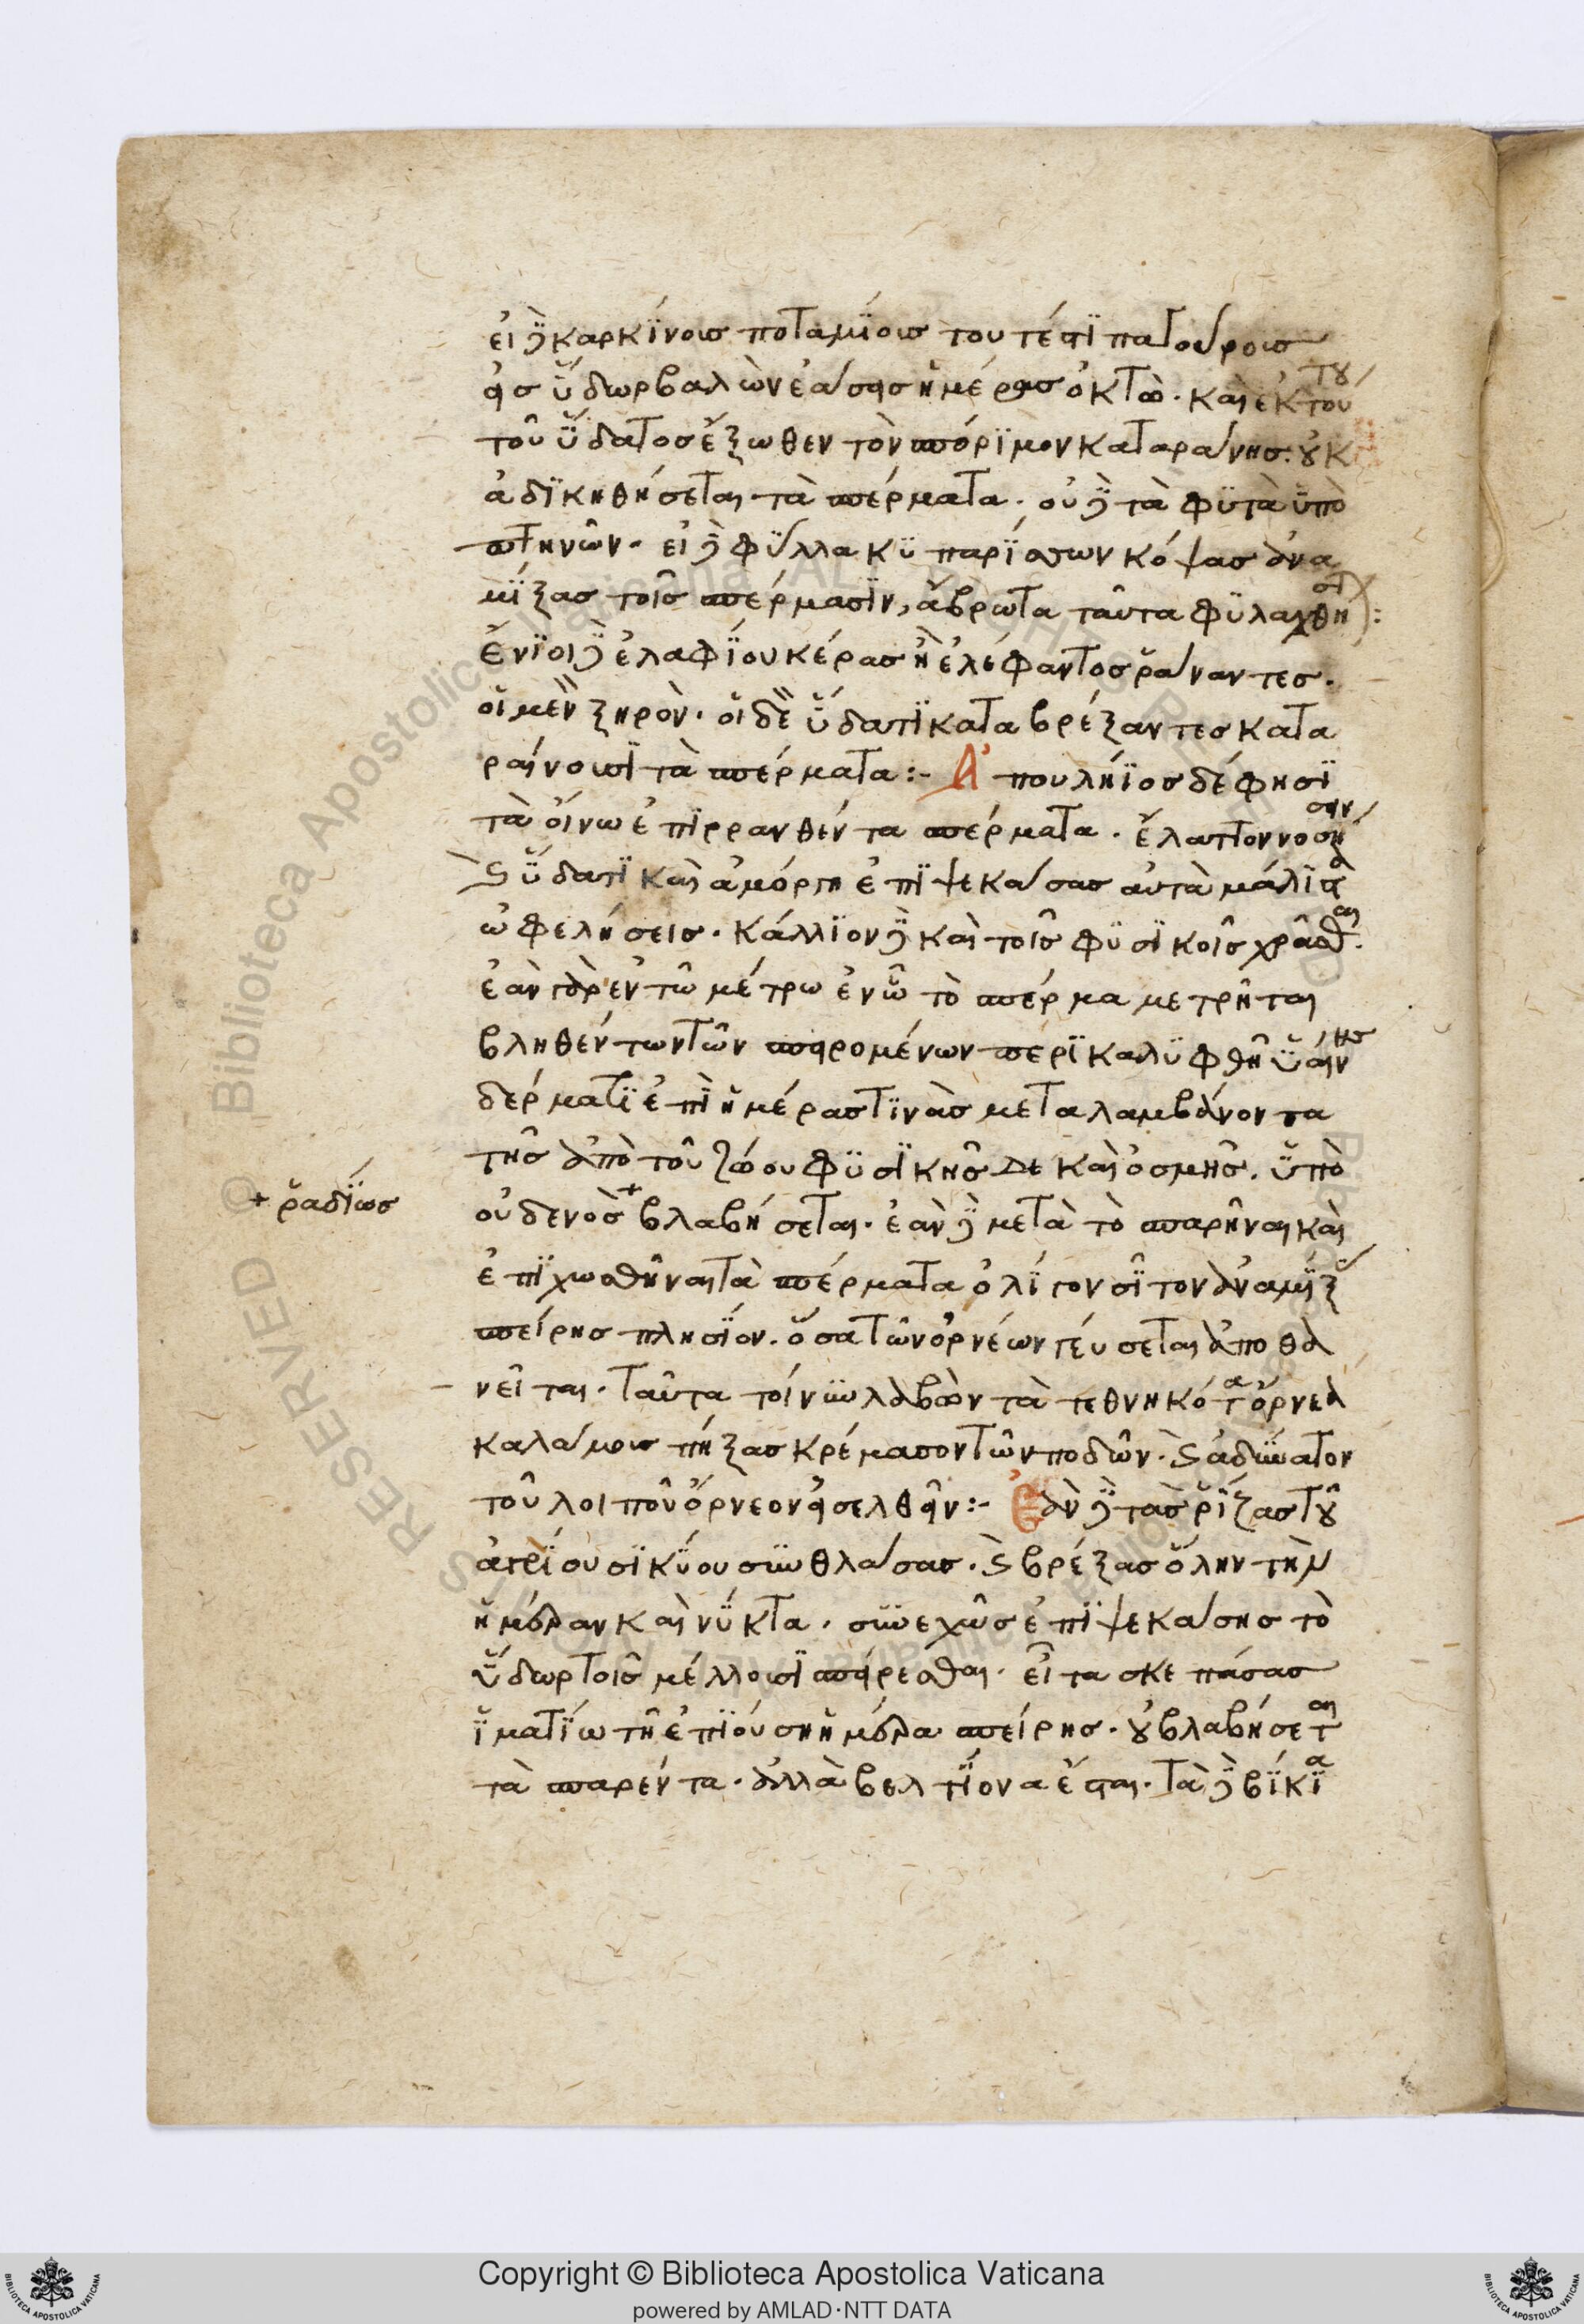 εἰ δὲ καρκίνοις ποταμίοις τουτέστι παγούροις
εἰς ὕδωρ βαλὼν ἐάσεις ἡμέρας ὀκτώ. καὶ ἐκ τούτου
τοῦ ὕδατος ἔξωθεν τὸν σπόριμον καταράνης. οὐκ
ἀδικηθήσεται τὰ σπέρματα. οὐδὲ τὰ φυτὰ ὑπὸ
πτηνῶν. εἰ δὲ φύλλα κυπαρίσσων κόψας ἀνα
μίξας τοῖς σπέρμασιν, ἄβρωτα ταῦτα φυλαχθή
σεται :
ἔνιοι δὲ ἐλαφίου κέρας ἢ ἐλέφαντος ῥάναντες.
οἱ μὲν ξηρὸν. οἱ δὲ ὕδατι καταβρέξαντες κατα
ραίνουσι τὰ σπέρματα :- Ἀπουλήϊος δέ φησι
τὰ οἴνω ἐπιρρανθέντα σπέρματα. ἔλαττον νοσεῖν
καὶ ὕδατι καὶ ἀμόργη ἐπιψεκάσας αὐτὰ μάλιστα
ὠφελήσεις. κάλλιον δὲ καὶ τοῖς φυσικοῖς χρᾶσθαι.
ἐὰν γὰρ ἐν τῶ μέτρω ἐν ὧ τὸ σπέρμα μετρῆται
βληθέντων τῶν σπειρομένων περικαλυφθῆ ὑαίνης
δέρματι ἐπὶ ἡμέρας τινὰς μεταλαμβάνοντα
τῆς ἀπὸ τοῦ ζώου φυσικῆς δε καὶ ὀσμῆς. ὑπὸ
+ ῥαδίως
οὐδενὸς + βλαβήσεται. ἐὰν δὲ μετὰ τὸ σπαρῆναι καὶ
ἐπιχωσθῆναι τὰ σπέρματα ὀλίγον σῖτον ἀναμὶξ
σπείρης πλησίον. ὅσα τῶν ὀρνέων γεύσεται ἀποθα
νεῖται. ταῦτα τοίνυν λαβὼν τὰ τεθνηκότα ὄρνεα
καλάμοις πήξας κρέμασον τῶν ποδῶν. καὶ ἀδύνατον
τοῦ λοιποῦ ὄρνεον εἰσελθεῖν :- Ἐὰν δὲ τὰς ῥίζας τοῦ
ἀγρίου σικύου συνθλάσας. καὶ βρέξας ὅλην τὴν
ἡμέραν καὶ νύκτα. συνεχῶς ἐπιψεκάσης τὸ
ὕδωρ τοῖς μέλλουσι σπείρεσθαι. εἶτα σκεπάσας
ἱματίω τῆ ἐπιούση ἡμέρα σπείρης. οὐ βλαβήσεται
τὰ σπαρέντα. ἀλλὰ βελτίονα ἔσται. τὰ δὲ βίκια
Copyright © Biblioteca Apostolica Vaticana
powered by AMLAD·NTT DATA